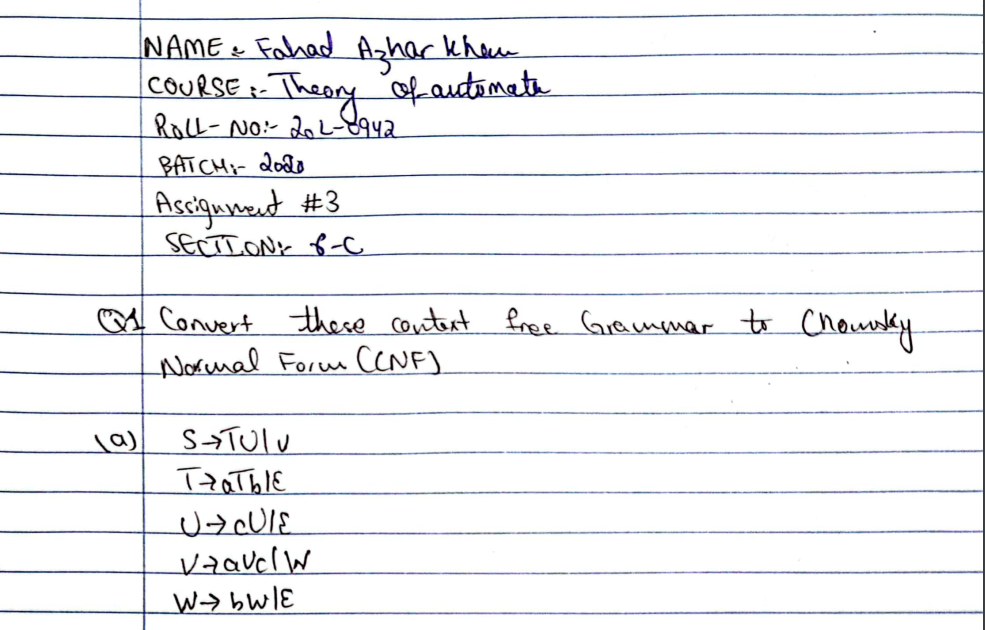 NAME :- Fahad Azhar khan
COURSE :- Theory of automata
ROLL-NO:- 20L-0942
BATCH:- 2020
Assignment #3
SECTION:- 6-C
Q1 Convert these context free Grammar to Chomsky
Normal Form (CNF)
(a) S→TU|V
T→aTb|ε
U→cU|ε
V→aVc|W
W→bW|ε